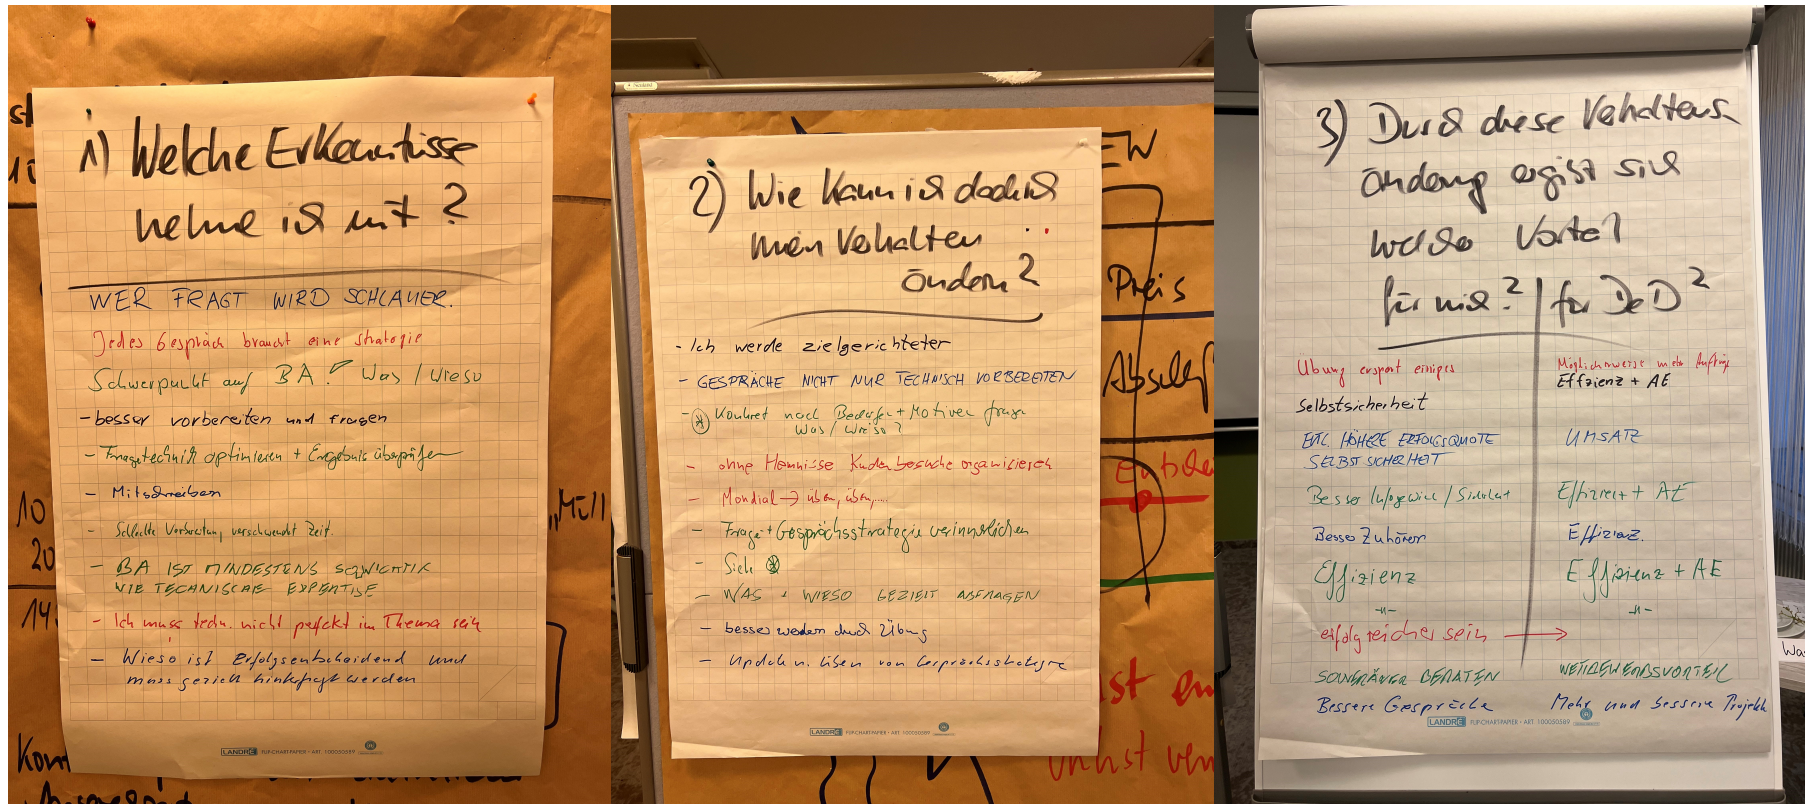 1) Welche Erkenntnisse
nehme ich mit?
WER FRAGT WIRD SCHLAUER.
Jedes Gespräch braucht eine strategie
Schwerpunkt auf BA! Was / Wieso
- besser vorbereiten und fragen
- Fragetechnik optimieren + Ergebnis überprüfen
- Mitschreiben
- Schlechte Vorbereitung verschwendet Zeit.
- BA IST MINDESTENS SO WICHTIG
WIE TECHNISCHE EXPERTISE
- Ich muss techn. nicht perfekt im Thema sein
- Wieso ist Erfolgsentscheidend und
muss gezielt hinterfragt werden
LANDRÉ FLIP-CHART-PAPIER • ART. 100050589
2) Wie kann ich dadurch
mein Verhalten
ändern?
- Ich werde zielgerichteter
- GESPRÄCHE NICHT NUR TECHNISCH VORBEREITEN
- Konkret nach Bedarf + Motiven fragen
Was / Wieso?
- ohne Hemnisse Kundenbesuche organisieren
- Mondial → üben, üben,....
- Frage + Gesprächsstrategie verinnerlichen
- Siehe
- WAS + WIESO GEZIELT ABFRAGEN
- besser werden durch Übung
- Updak u. üben von Gesprächsstrategie
LANDRÉ FLIP-CHART-PAPIER • ART. 100050589
EW
Preis
Abschluß
3) Durch diese Verhaltens-
änderung ergibt sich
welcher Vorteil
für mich? für DeD?
Übung erspart einiges
Möglicherweise mehr Aufträge
Effizienz + AE
Selbstsicherheit
EVTL. HÖHERE ERFOLGSQUOTE
SELBSTSICHERHEIT
UMSATZ
Besser Infogewinn / Sicherheit
Effizient + AE
Besser Zuhören
Effizienz.
Effizienz
Effizienz + AE
-"-
-"-
erfolgreicher sein →
SOUVERÄNER BERATEN
WETTBEWERBSVORTEIL
Bessere Gespräche
Mehr und bessere Projekte
LANDRÉ FLIP-CHART-PAPIER • ART. 100050589
10
20
"Müll
14
Kon